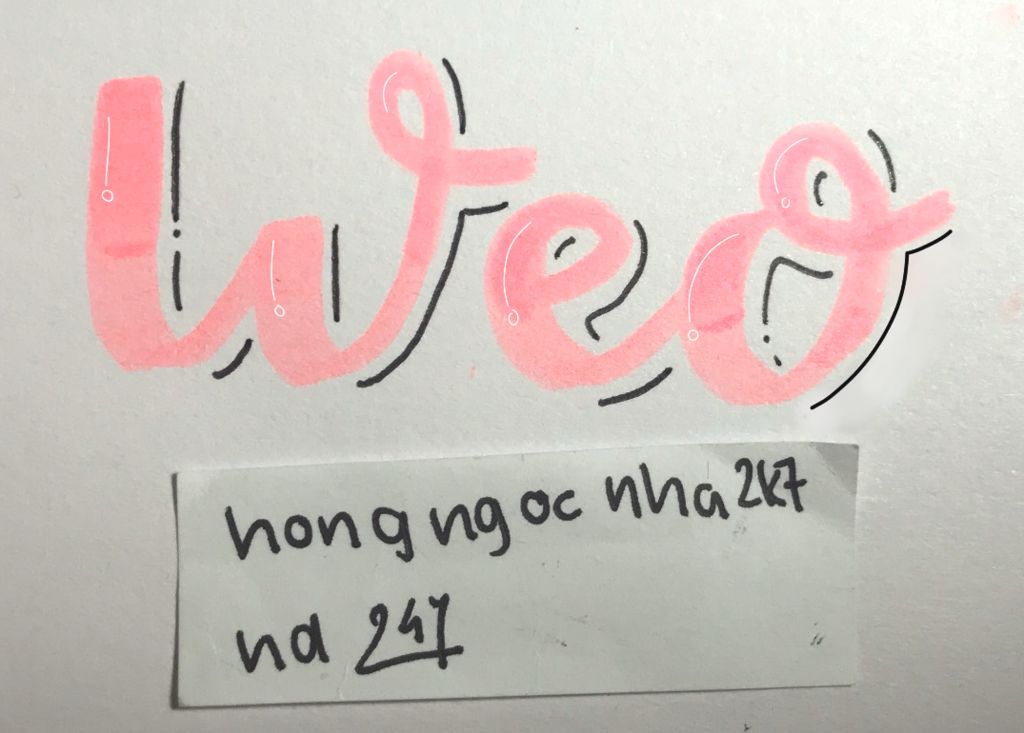 Weo
hong ngoc nha 2k7
nd 247